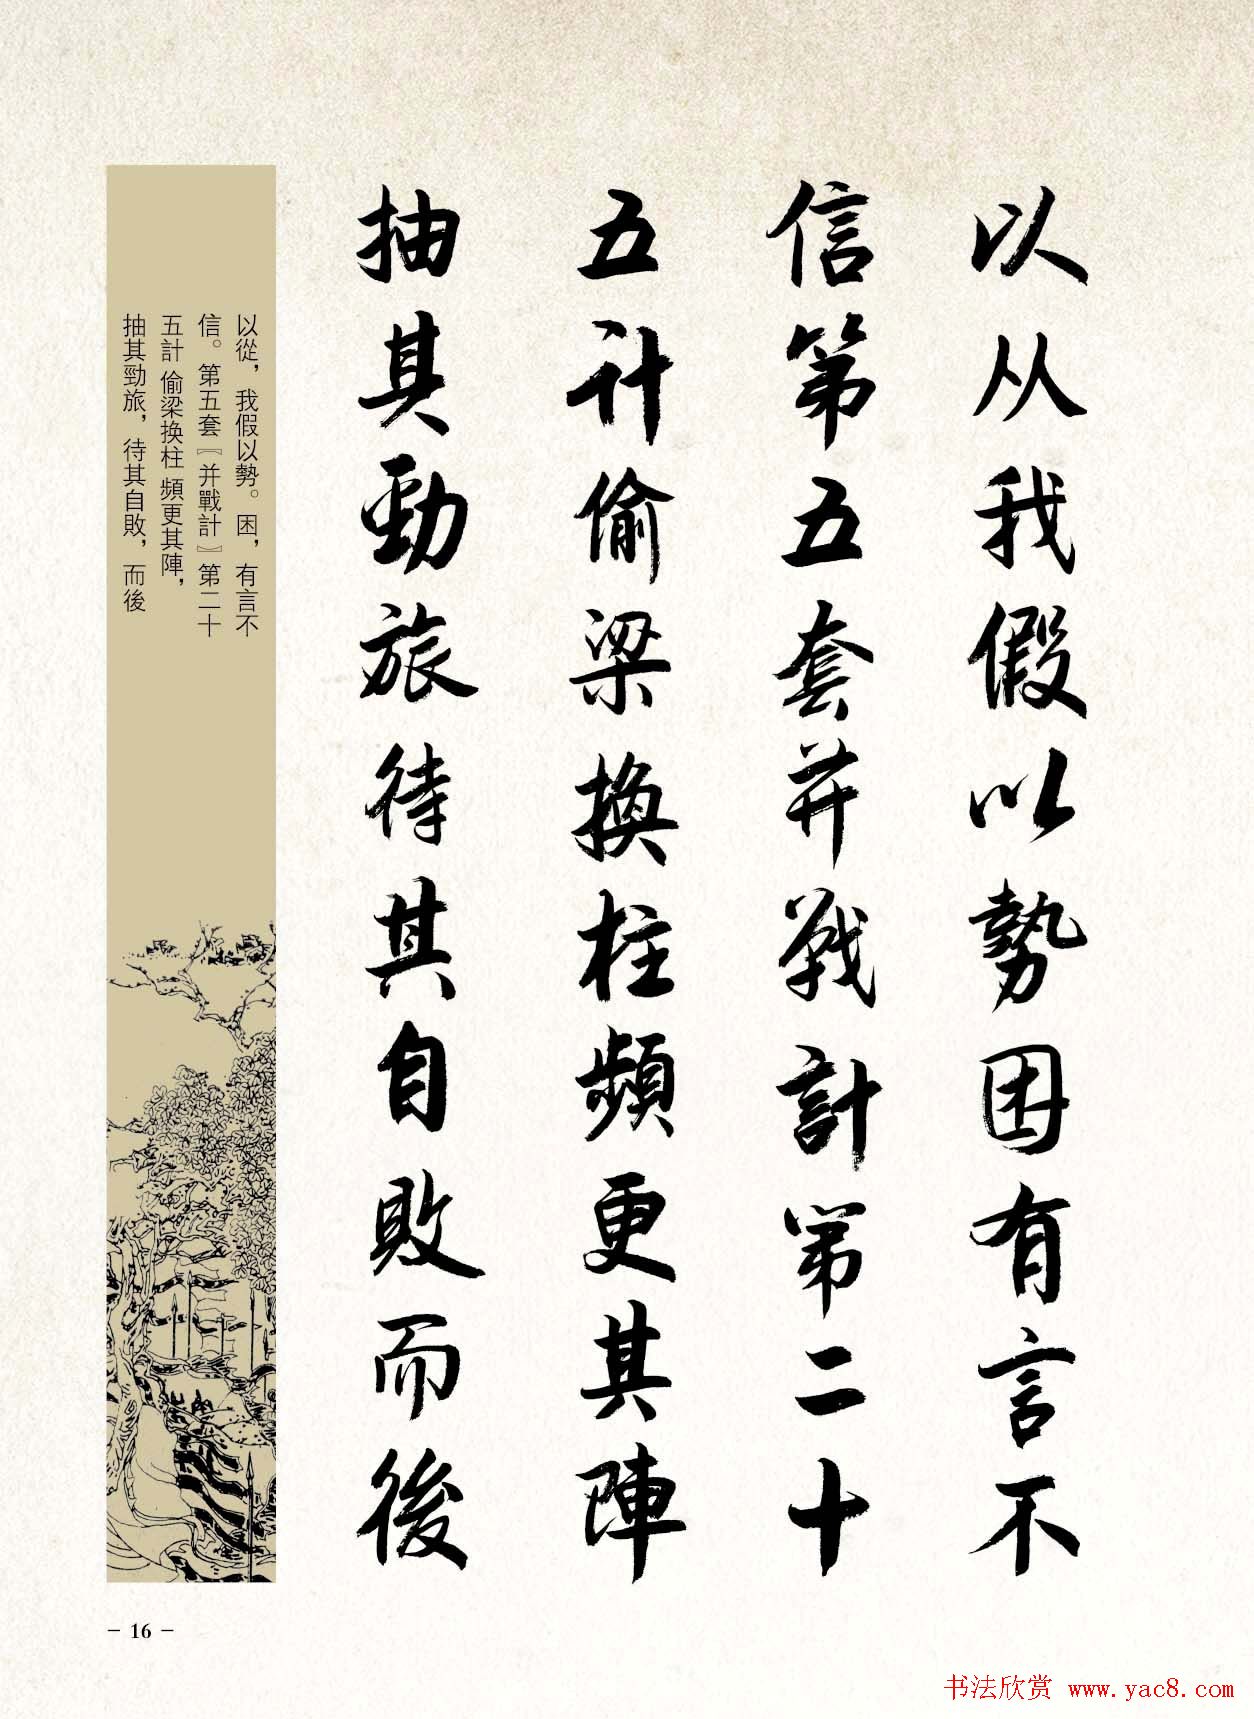 以从我假以勢困有言不
信第五套并戰計第二十
五计偷梁換柱頻更其陣
抽其勁旅待其自敗而後
以從，我假以勢。困，有言不
信。第五套〖并戰計〗第二十
五計 偷梁换柱 頻更其陣，
抽其勁旅，待其自敗，而後
- 16 -
书法欣赏 www.yac8.com